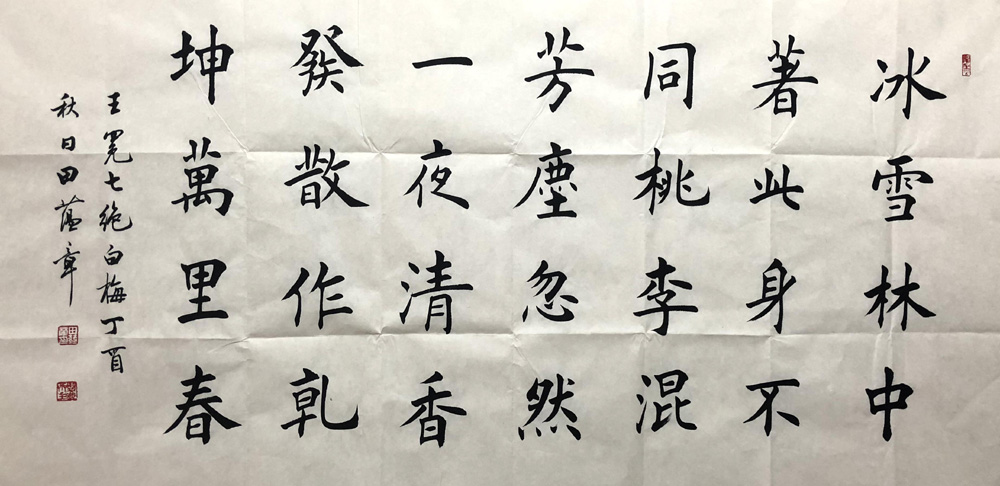 冰雪林中
著此身不
同桃李混
芳塵忽然
一夜清香
發散作乹
坤萬里春
王冕七絕白梅丁酉
秋日田蘊章